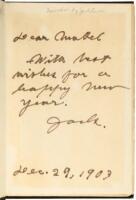 Dear Mabel
With best
wishes for a
happy new
year.
Jack.
Dec. 29, 1903